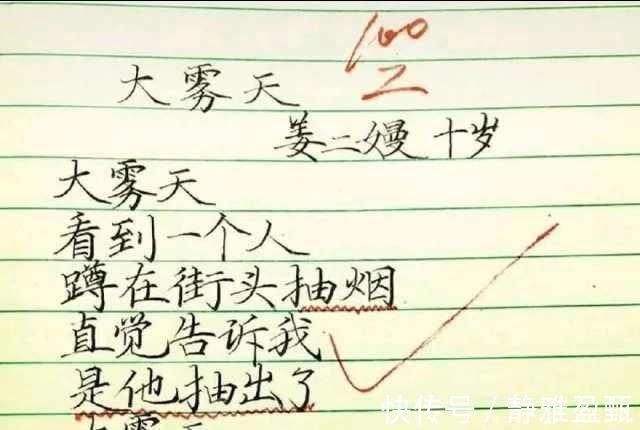 大雾天
100
姜二嫚 十岁
大雾天
看到一个人
蹲在街头抽烟
直觉告诉我
是他抽出了
大雾天
快传号/静雅盈甄